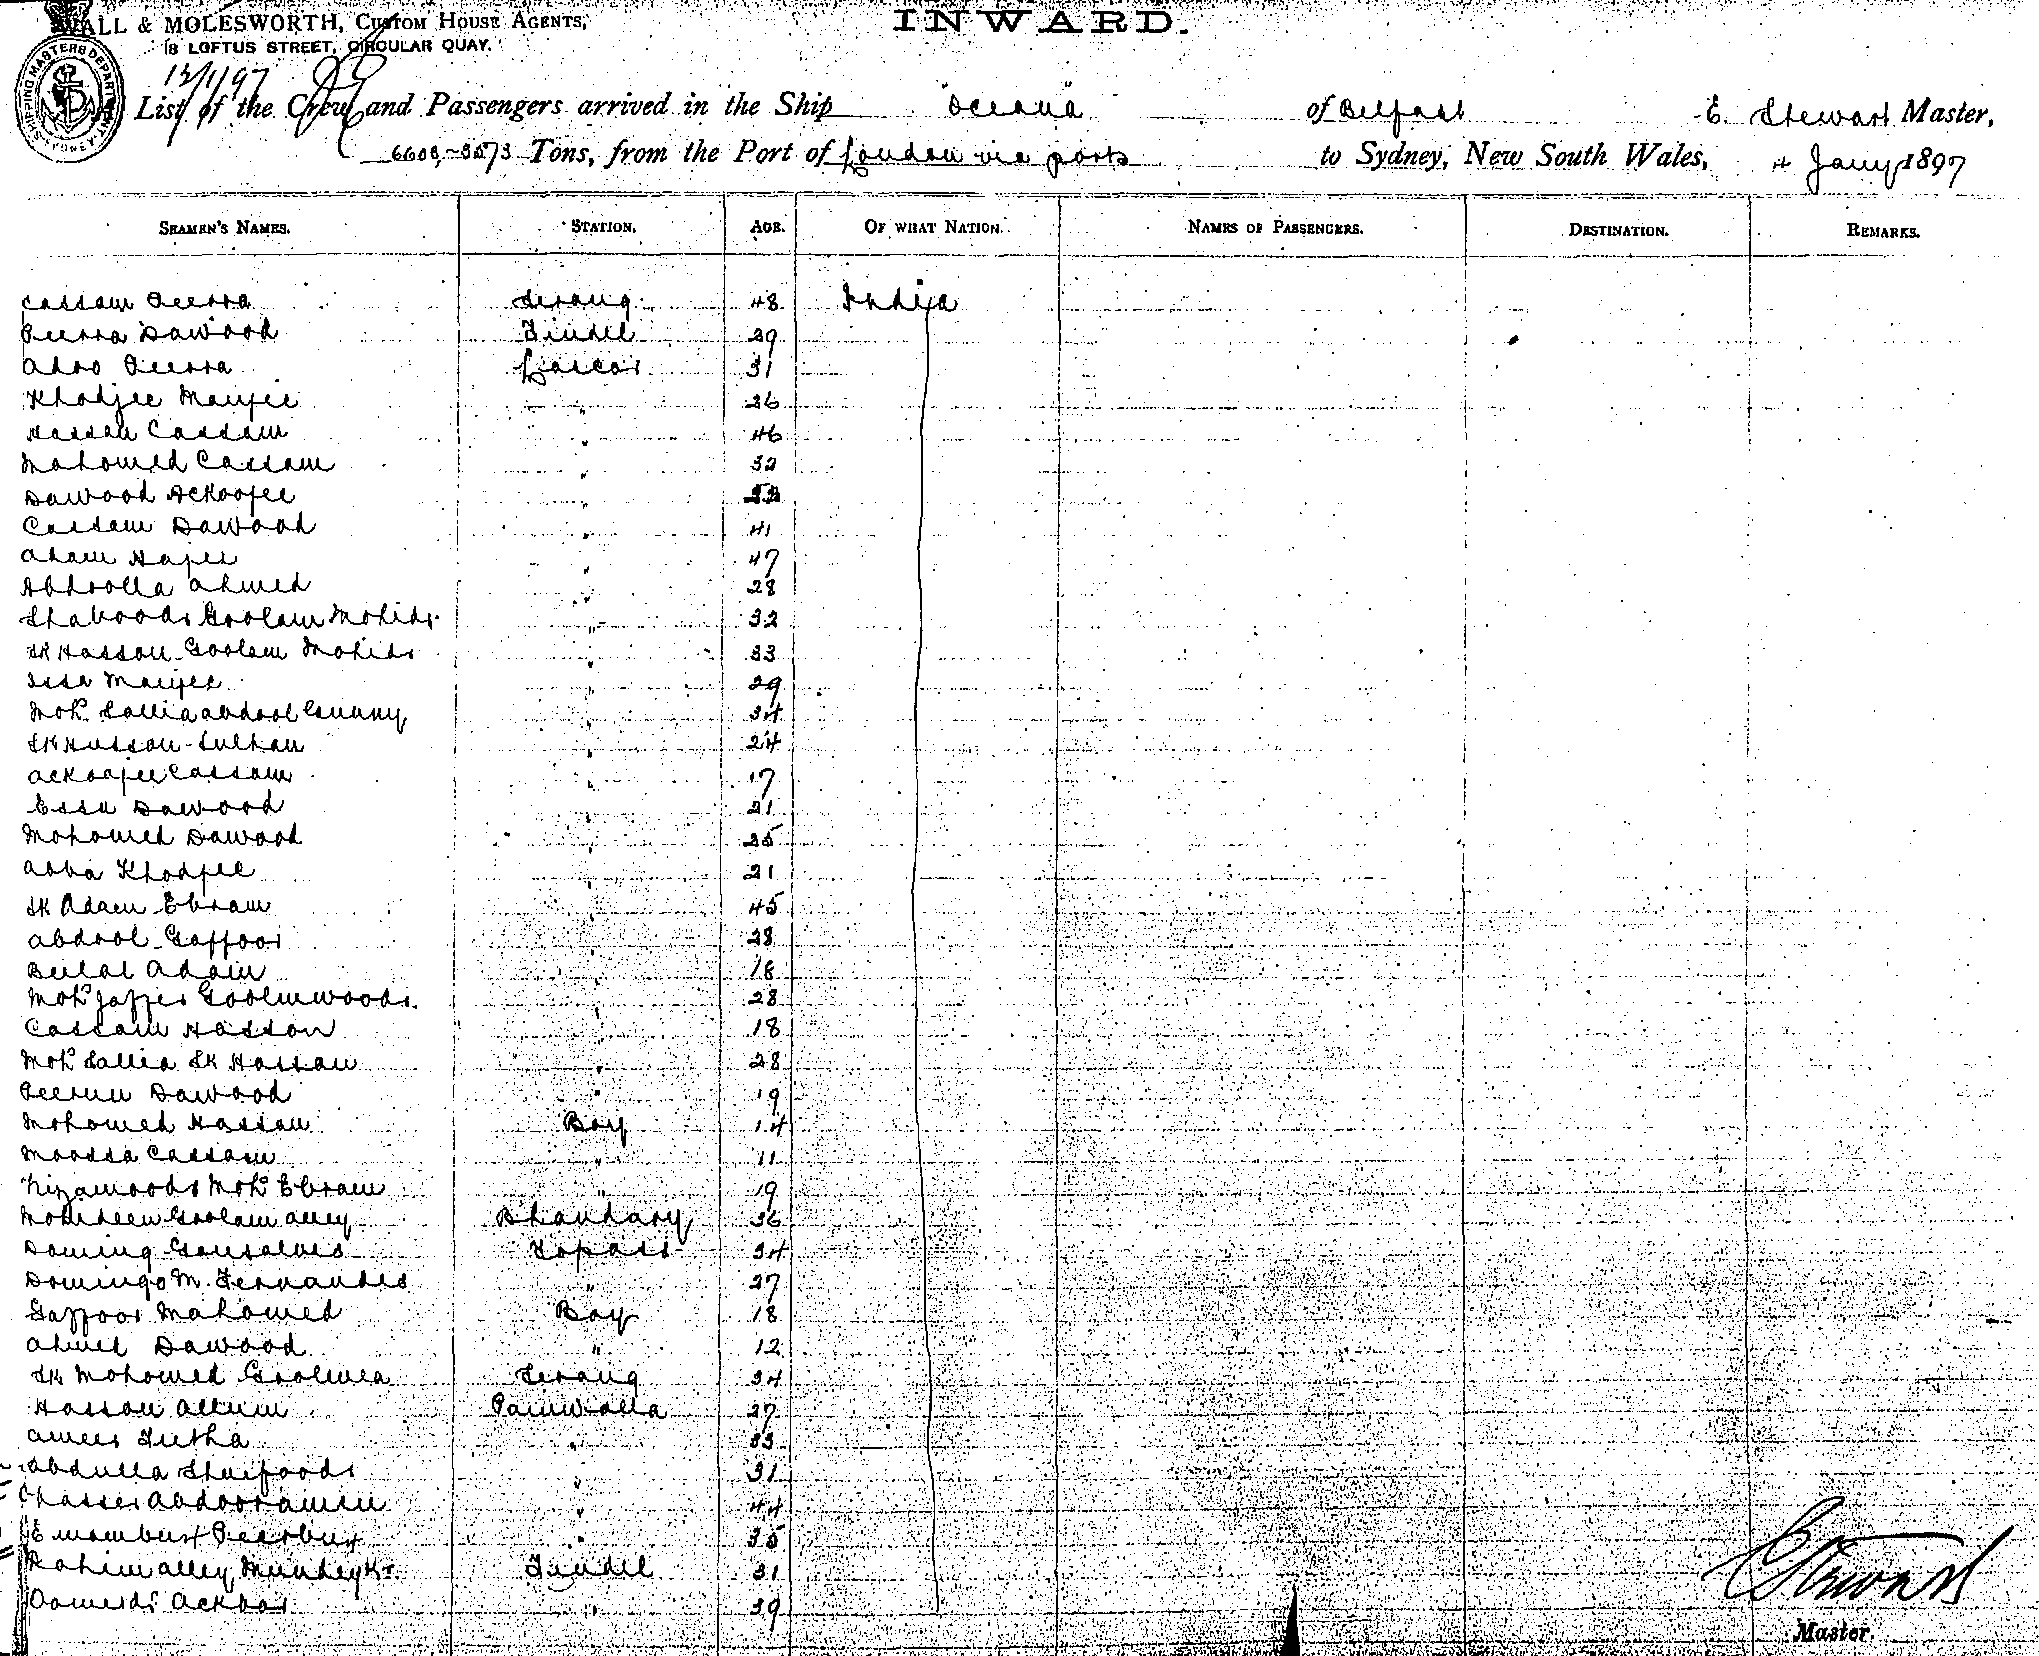 WALL & MOLESWORTH, CUSTOM HOUSE AGENTS,
18 LOFTUS STREET, CIRCULAR QUAY.
INWARD.
SHIPPING MASTERS DEPARTMENT SYDNEY
13/1/97
A List of the Crew and Passengers arrived in the Ship "Oceana" of Belfast E. Stewart Master,
Tons, from the Port of London via ports to Sydney, New South Wales, 4 Jany 1897
SEAMEN'S NAMES. STATION. AGE. OF WHAT NATION. NAMES OF PASSENGERS. DESTINATION. REMARKS.
Cassam Peerra Serang 48 India
Peerra Dawood Tindel 39
Peerra Lascar 31
Khodjee Manjee " 26
Hassan Cassam " 46
Mahomed Cassam " 32
Dawood Ackoojee "
Cassam Dawood " 41
Adam Hajee " 47
Abdoolla Ahmed " 28
Shaboodr Goolam Mohidr " 32
Sk Hassan Goolam Mohidr " 33
Issa Manjee " 29
Moh Sallia Abdool Gunny " 34
Sk Hassan Sultan " 24
Ackoojee Cassam " 17
Essa Dawood " 21
Mohomed Dawood " 25
Abba Khodjee " 21
Sk Adam Ebram " 45
Abdool Gaffoor " 28
Beelal Adam " 18
Moh Jaffer " 28
Cassam Hassan " 18
Moh Sallia Sk Hassan " 28
Dawood " 19
Mohomed Hassan Boy 14
Moossa Cassam " 11
Nizamoodr Moh Ebram " 19
Mohideen Goolam Alley Bhandary 36
Doming Gonsalves Topass 34
Domingo M. Fernandes " 27
Gaffoor Mahomed Boy 18
Ahmed Dawood " 12
Sk Mohomed Serang 34
Hassan Allum Paniwalla 27
Ameer " 33
Abdulla " 31
Abdooramen " 44
Emambux Peerbux " 35
Rahim Alley Tindel 31
Ackbar " 39
E Stewart
Master.